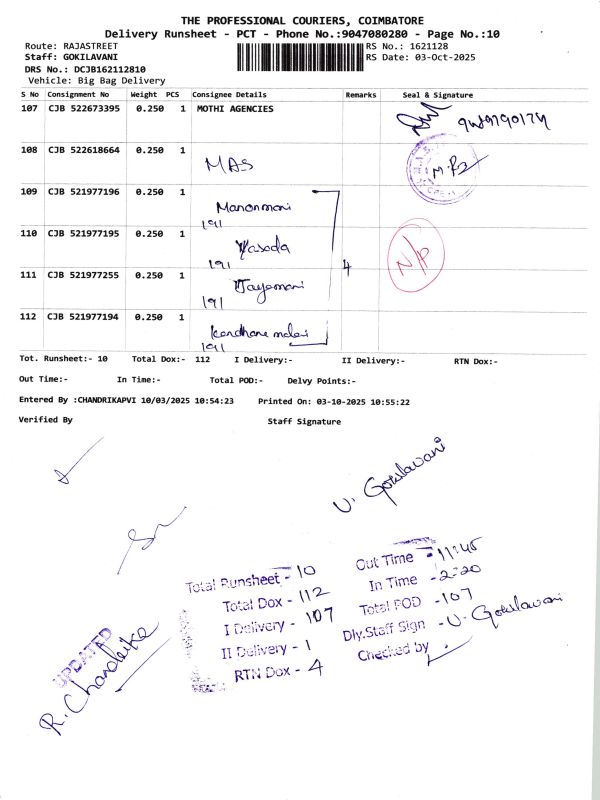 THE PROFESSIONAL COURIERS, COIMBATORE
Delivery Runsheet - PCT - Phone No.:9047080280 - Page No.:10
Route: RAJASTREET
RS No.: 1621128
Staff: GOKILAVANI
RS Date: 03-Oct-2025
DRS No.: DCJB162112810
Vehicle: Big Bag Delivery
S No Consignment No Weight PCS Consignee Details Remarks Seal & Signature
107 CJB 522673395 0.250 1 MOTHI AGENCIES
108 CJB 522618664 0.250 1 MAS
109 CJB 521977196 0.250 1 Manonmani
191
110 CJB 521977195 0.250 1 Yasoda
191 4 N/P
111 CJB 521977255 0.250 1 Jayamani
191
112 CJB 521977194 0.250 1
191
Tot. Runsheet:- 10 Total Dox:- 112 I Delivery:- II Delivery:- RTN Dox:-
Out Time:- In Time:- Total POD:- Delvy Points:-
Entered By :CHANDRIKAPVI 10/03/2025 10:54:23 Printed On: 03-10-2025 10:55:22
Verified By Staff Signature
V. Gokilavani
Total Runsheet - 10
Total Dox - 112
I Delivery - 107
II Delivery - 1
RTN Dox - 4
Out Time - 11:45
In Time - 2:20
Total POD - 107
Dly.Staff Sign - V. Gokilavani
Checked by
UPDATED
R. Chandrika